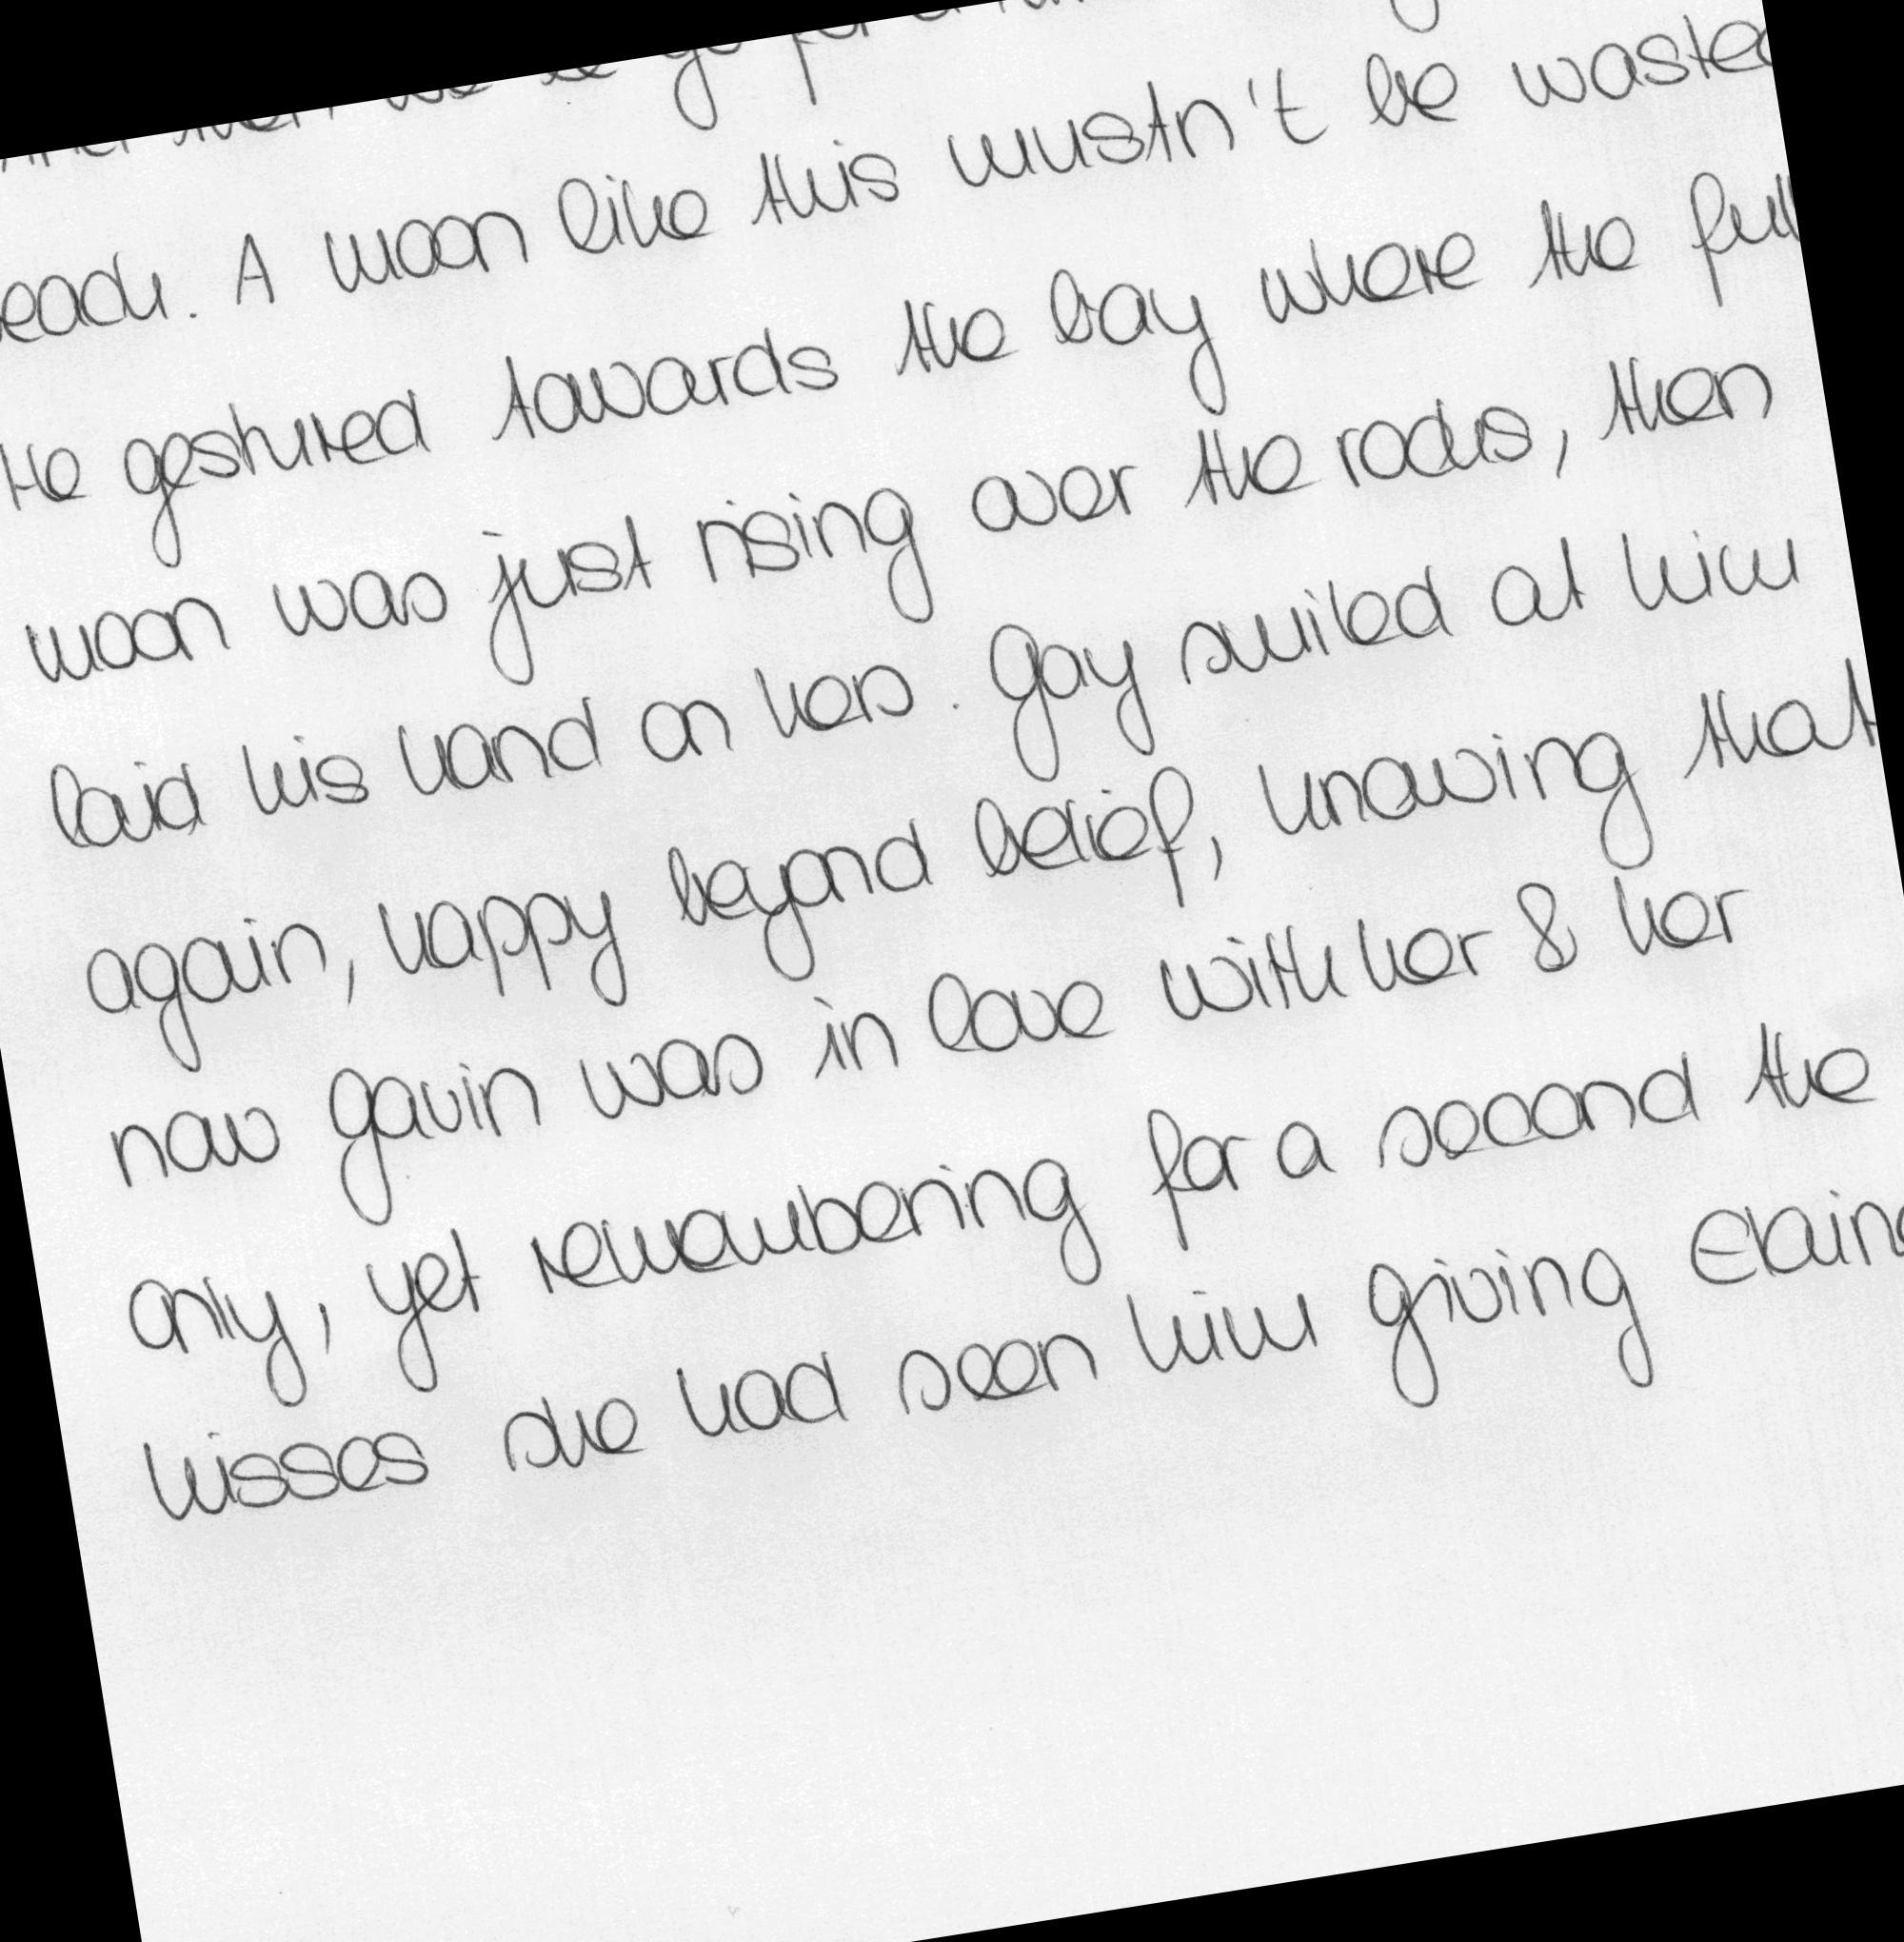 then we'll go for a
beach. A moon like this mustn't be wasted
He gestured towards the bay where the full
moon was just rising over the rocks, then
laid his hand on hers. Gay smiled at him
again, happy beyond belief, knowing that
now Gavin was in love with her & her
only, yet remembering for a second the
kisses she had seen him giving Elaine